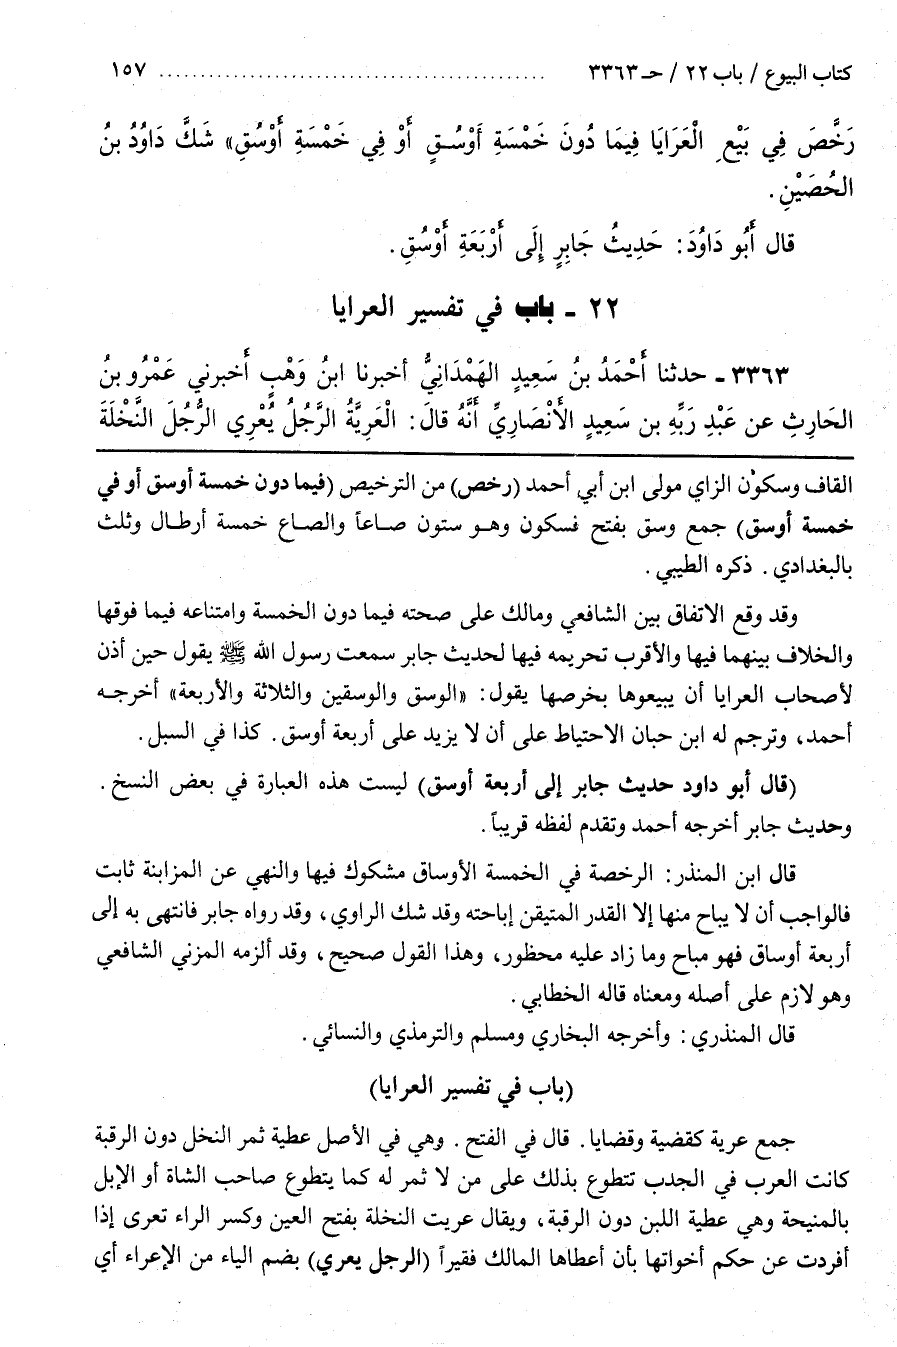 كتاب البيوع / باب ٢٢ / حـ ٣٣٦٣ ............................................. ١٥٧
رَخَّصَ فِي بَيْعِ الْعَرَايَا فِيمَا دُونَ خَمْسَةِ أَوْسُـقٍ أَوْ فِي خَمْسَةِ أَوْسُقٍ» شَكَّ دَاوُدُ بنُ
الحُصَيْنِ.
قال أَبُو دَاوُدَ: حَدِيثُ جَابِرٍ إِلَى أَرْبَعَةِ أَوْسُقٍ.
٢٢ - باب في تفسير العرايا
٣٣٦٣ - حدثنا أَحْمَدُ بنُ سَعِيدٍ الهَمْدَانِيُّ أخبرنا ابنُ وَهْبٍ أخبرني عَمْرُو بنُ
الحَارِثِ عن عَبْدِ رَبِّهِ بن سَعِيدٍ الأَنْصَارِيِّ أَنَّهُ قالَ: الْعَرِيَّةُ الرَّجُلُ يُعْرِي الرَّجُلَ النَّخْلَةَ
القاف وسكون الزاي مولى ابن أبي أحمد (رخص) من الترخيص (فيما دون خمسة أوسق أو في
خمسة أوسق) جمع وسق بفتح فسكون وهـو ستون صـاعاً والصـاع خمسة أرطـال وثلث
بالبغدادي. ذكره الطيبي.
وقد وقع الاتفاق بين الشافعي ومالك على صحته فيما دون الخمسة وامتناعه فيما فوقها
والخلاف بينهما فيها والأقرب تحريمه فيها لحديث جابر سمعت رسول الله ﷺ يقول حين أذن
لأصحاب العرايا أن يبيعوها بخرصها يقول: «الوسق والوسقين والثلاثة والأربعة» أخرجـه
أحمد، وترجم له ابن حبان الاحتياط على أن لا يزيد على أربعة أوسق. كذا في السبل.
(قال أبو داود حديث جابر إلى أربعة أوسق) ليست هذه العبارة في بعض النسخ.
وحديث جابر أخرجه أحمد وتقدم لفظه قريباً.
قال ابن المنذر: الرخصة في الخمسة الأوساق مشكوك فيها والنهي عن المزابنة ثابت
فالواجب أن لا يباح منها إلا القدر المتيقن إباحته وقد شك الراوي، وقد رواه جابر فانتهى به إلى
أربعة أوساق فهو مباح وما زاد عليه محظور، وهذا القول صحيح، وقد ألزمه المزني الشافعي
وهو لازم على أصله ومعناه قاله الخطابي.
قال المنذري: وأخرجه البخاري ومسلم والترمذي والنسائي.
(باب في تفسير العرايا)
جمع عرية كقضية وقضايا. قال في الفتح. وهي في الأصل عطية ثمر النخل دون الرقبة
كانت العرب في الجدب تتطوع بذلك على من لا ثمر له كما يتطوع صاحب الشاة أو الإبل
بالمنيحة وهي عطية اللبن دون الرقبة، ويقال عريت النخلة بفتح العين وكسر الراء تعرى إذا
أفردت عن حكم أخواتها بأن أعطاها المالك فقيراً (الرجل يعري) بضم الياء من الإعراء أي